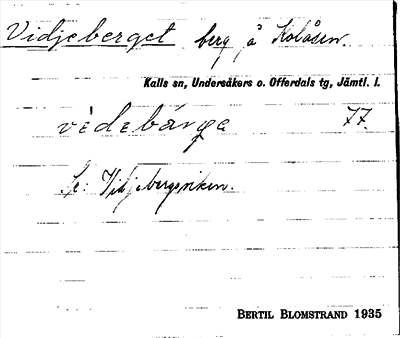 Vidjeberget berg å Kolåsen.
Kalls sn, Undersåkers o. Offerdals tg, Jämtl. l.
vìdebárγe 77.
Se: Vidjebergsviken.
BERTIL BLOMSTRAND 1935